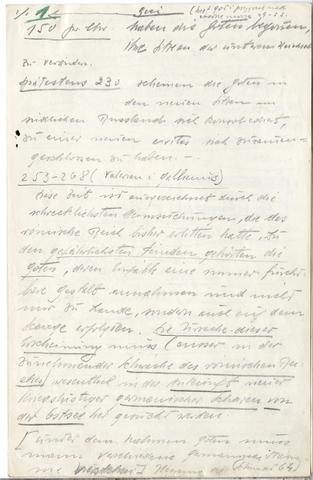 150 pr. Chr. haben die Goten begonnen,
ihre Sitzen der unteren Weichsel
zu verändern.
Spätestens 230 scheinen die Goten in
den neuen Sitzen im
südlichen Russlands sich konsolidiert,
zu einer neuen sich zusammen-
geschlossen zu haben. –
253-268 (Valerian & Gallienus)
Diese Zeit ist ausgezeichnet durch die
schrecklichsten Heimsuchungen, die das
römische Reich bisher erlitten hatte. Zu
den gefährlichsten Feinden gehörten die
Goten, deren Einfälle eine immer furcht-
bare Gestalt annahmen und nicht
nur zu Lande, sondern auch auf dem
erfolgten. Die Ursache dieser
Erscheinung muss (ausser in der
zunehmender Schwäche des römischen Rei-
ches) wesentlich in der Ankunft neuer
kriegslustiger germanischer Scharen von
der Ostsee her gesucht werden.
[Unter dem Nahmen Goten muss
mann verschiedene germanische